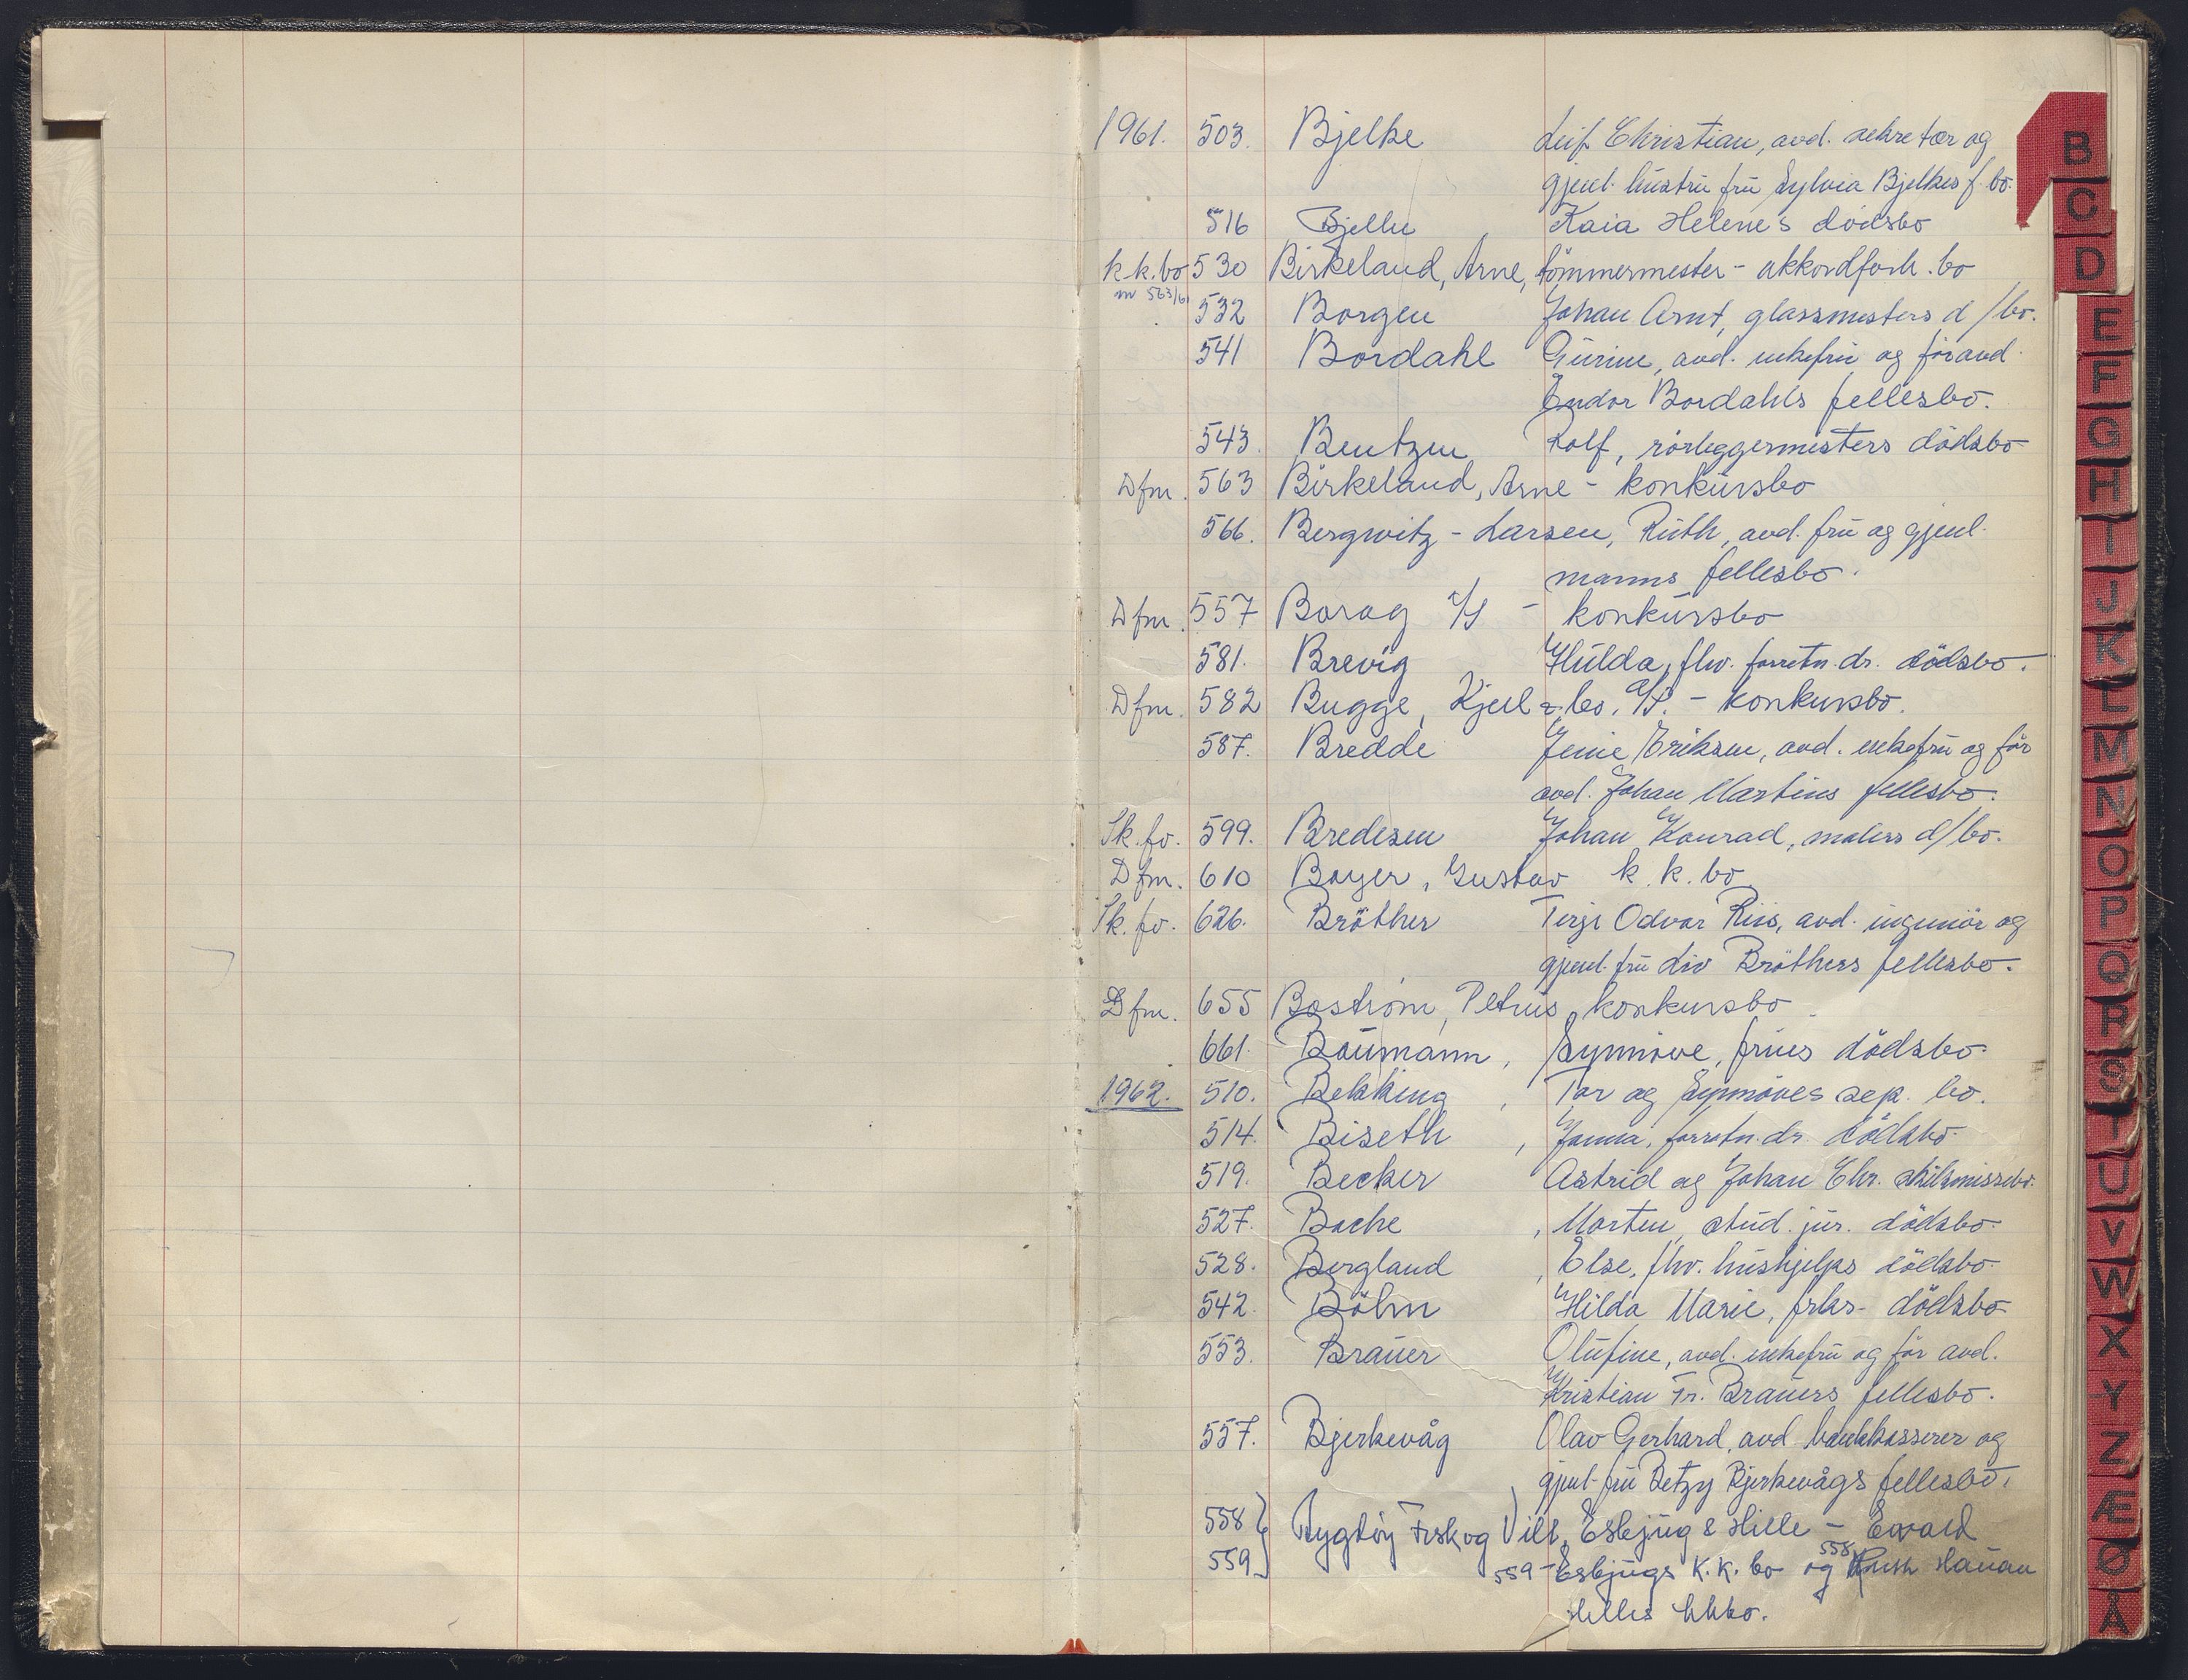 1961. 503. Bjelke Leif Christian, avd. sekretær og
gjenl. hustru fru Sylvia Bjelkes f. bo.
516 Bjelke, Kaia Helene's dödsbo
k.k.bo 530 Birkeland, Arne, tömmermester - akkordforh. bo
nr 563/61
532 Borgen Johan Arnt, glassmesters d/bo.
541 Bordahl Gurine, avd. enkefru og föravd.
Endor Bordahls fellesbo.
543. Bentzen Rolf, rörleggermesters dödsbo
Dfm. 563 Birkeland, Arne - konkursbo
566. Bergwitz-Larsen, Ruth, avd. fru og gjenl.
manns fellesbo.
Dfm. 557 Borag A/S - konkursbo
581. Brevig Hulda, fhv. forretn.dr. dödsbo.
Dfm. 582 Bugge, Kjell & Co. A/S. - konkursbo.
587. Bredde Jenie Eriksen, avd. enkefru og för
avd. Johan Martins fellesbo.
Sk.fv. 599. Bredesen Johan Konrad, malers d/bo.
Dfm. 610 Boyer, Gustav k.k.bo
Sk.fv. 626. Bröther Terje Odvar Riis, avd. ingeniör og
gjenl. fru Liv Bröthers fellesbo.
Dfm. 655 Boström, Petrus, konkursbo
661. Baumann, Synnöve, frues dödsbo.
1962. 510. Bekking, Tor og Synnöves sep. bo.
514. Biseth, Janna, forretn.dr. dödsbo.
519. Becker Astrid og Johan Chr. skilsmissebo.
527. Bache, Morten, stud. jur. dödsbo.
528. Bergland, Else, fhv. hushjelps dödsbo.
542. Böhm Hilda Marie, frks. dödsbo
553. Brauer Olufine, avd. enkefru og för avd.
Kristian Fr. Brauers fellesbo.
557. Bjerkevåg Olav Gerhard, avd bankkasserer og
gjenl. fru Betzy Bjerkevågs fellesbo.
558 Bygdöy Fisk og Vilt, Esbjug & Hille - Ewald
559 559 - Esbjugs K.K. bo og 558 Ruth Hauan
Hilles kkbo.
B
C
D
E
F
G
H
I
J
K
L
M
N
O
P
Q
R
S
T
U
V
W
X
Y
Z
Æ
Ø
Å